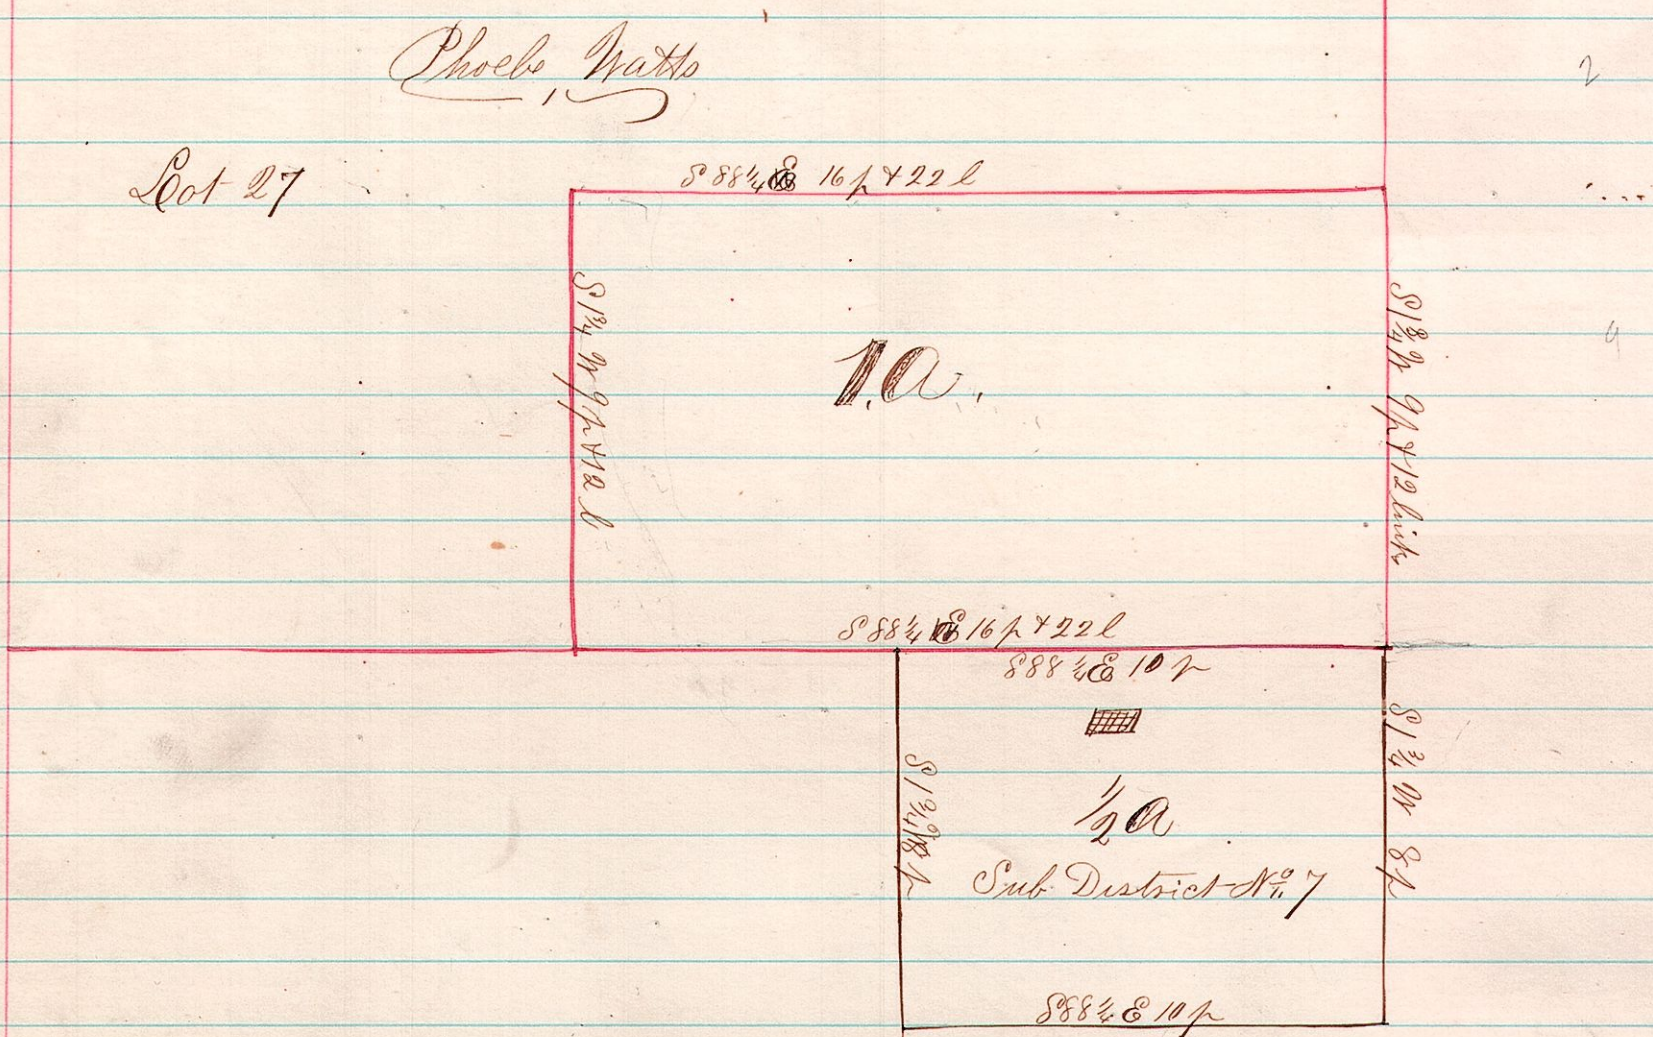 Phoebe Watts
2
Lot 27
S 88 1/4 E 16 p & 22 l
S 1 3/4 W 9 p & 12 l
1. a.
S 1 3/4 W 9 p & 12 links
9
S 88 1/4 E 16 p & 22 l
S 88 1/4 E 10 p
S 1 3/4 W 8 p
1/2 a
S 1 3/4 W 8 p
Sub District No. 7
S 88 1/4 E 10 p